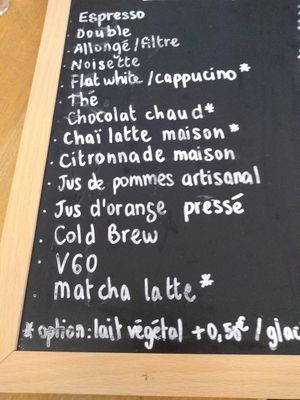 · Espresso
· Double
· Allongé/filtre
· Noisette
· Flat white/cappucino*
· Thé
· Chocolat chaud*
· Chaï latte maison*
· Citronnade maison
· Jus de pommes artisanal
· Jus d'orange pressé
· Cold Brew
· V60
· matcha latte*
* option: lait végétal +0,50€ / glac